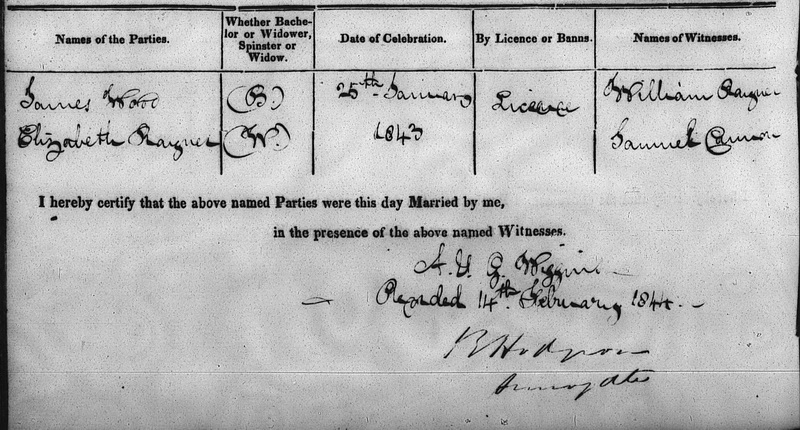 Names of the Parties.
Whether Bache-
lor or Widower,
Spinster or
Widow.
Date of Celebration.
By Licence or Banns.
Names of Witnesses.
James Wood
(B.)
25th January
Licence
William Rayner
Elizabeth Rayner
(W.)
1843
Samuel
I hereby certify that the above named Parties were this day Married by me,
in the presence of the above named Witnesses.
A.
14th February 184
B Hodgson